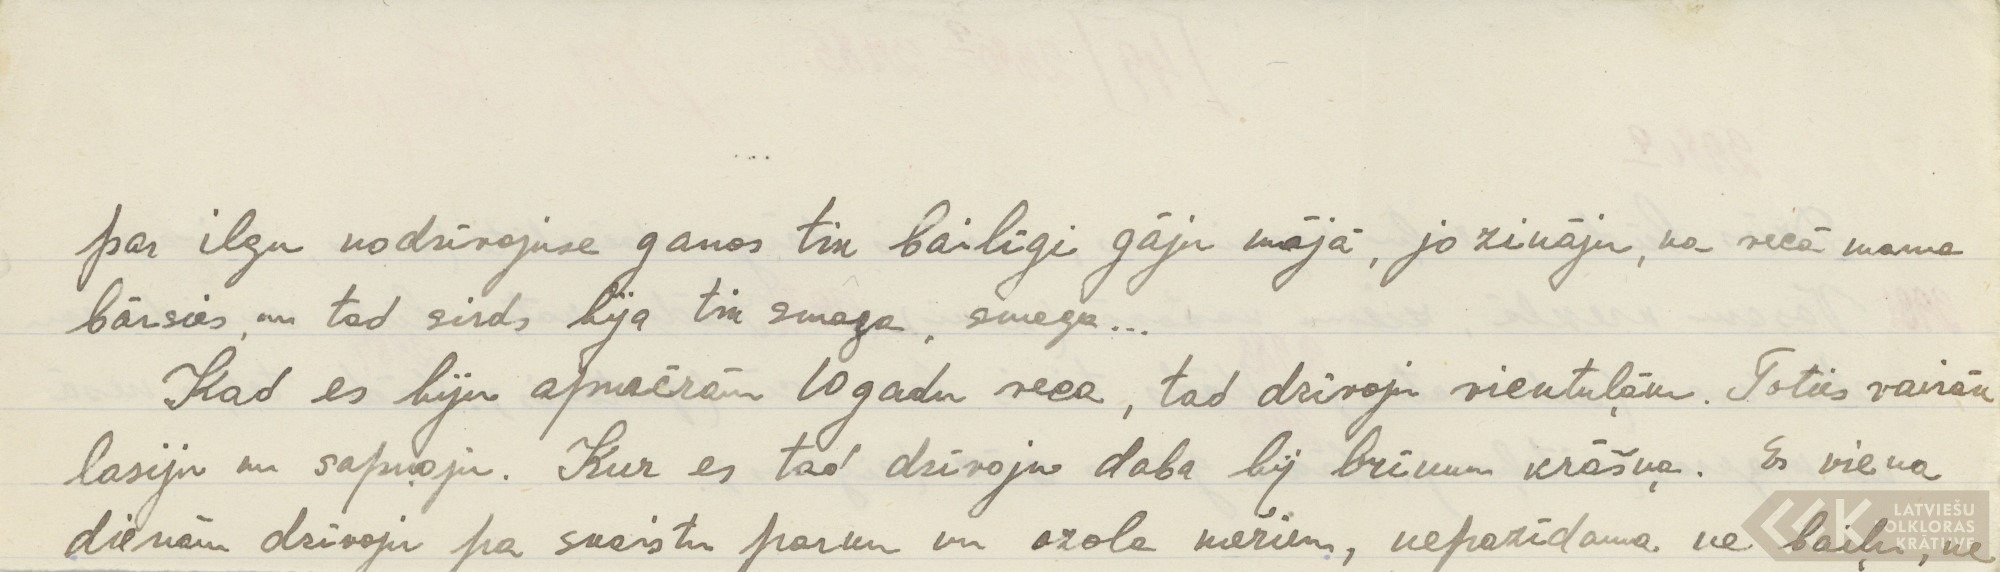 par ilgu nodzīvojuse ganos tik bailīgi gāju mājā, jo zināju, ka vecā mama
bārsies, un tad sirds bija tik smaga, smaga...
Kad es biju apmēram 10 gadu veca, tad dzīvoju vientuļām. Toties vairāk
lasiju un sapņoju. Kur es tad dzīvoju daba bij brīnum krāšņa. Es viena
dienām dzīvoju pa skaistu parku un ozola mežiem, nepazīdama ne baiļu, ne
LATVIEŠU
FOLKLORAS
KRĀTUVE